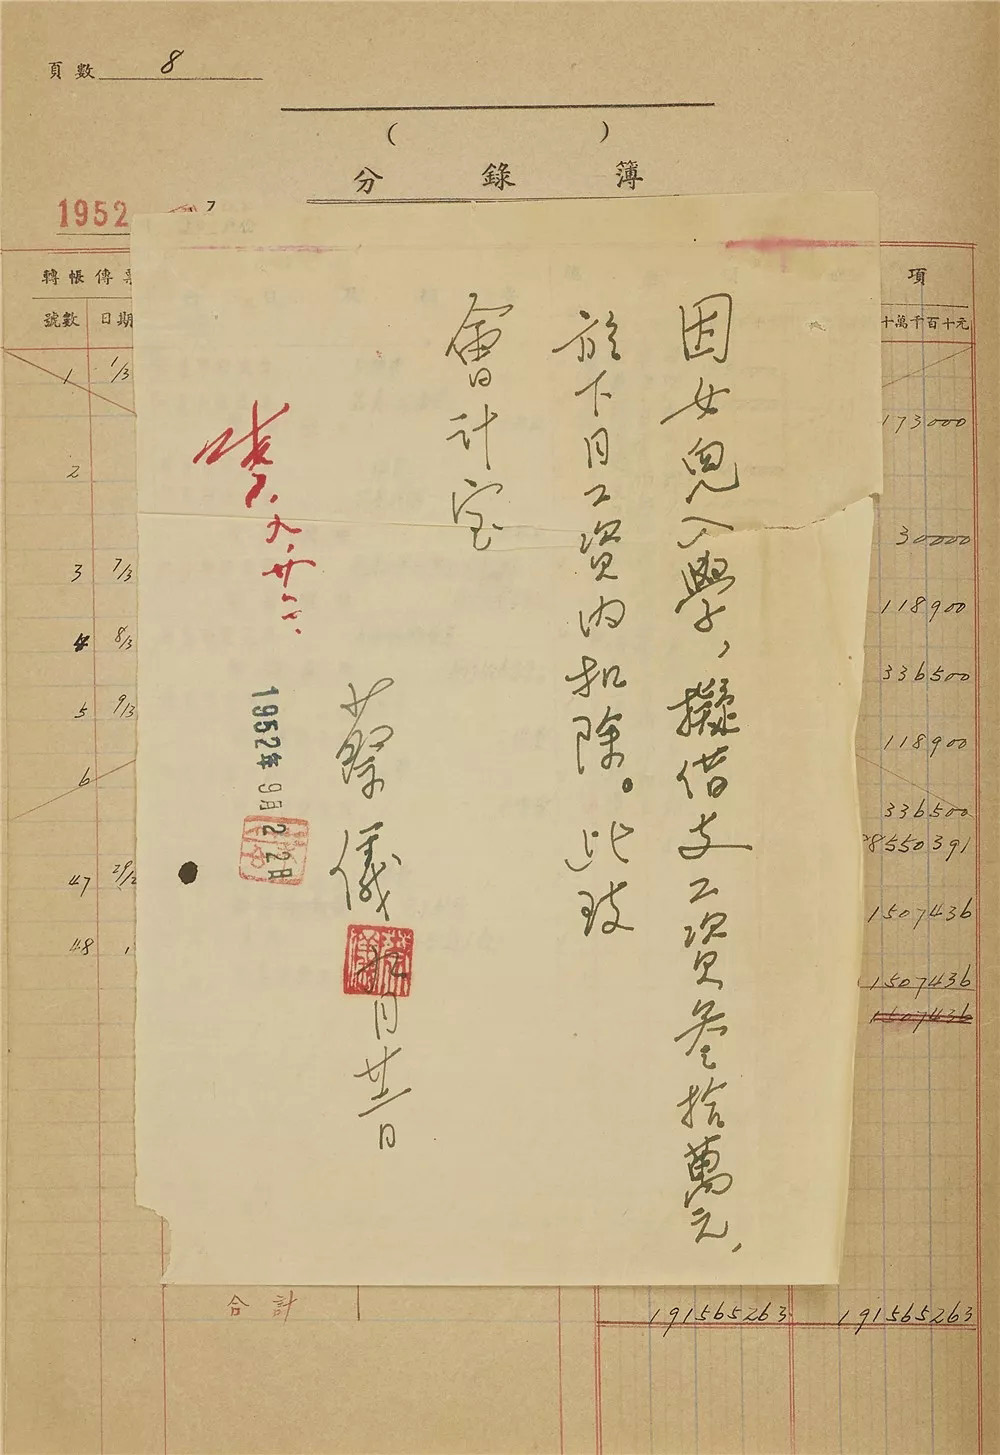 頁數 8
( )
分錄簿
1952
7
轉帳傳票
號數 日期
項
十萬千百十元
1 1/3
173000
2
30000
3 7/3
118900
4 8/3
336500
5 9/3
118900
6
336500
8550391
47 29/12
1507436
48
1507436
1507436
合計 191565263 191565263
因女兒入學,擬借支工資叁拾萬元,
於下月工資內扣除。此致
會計室
蔡儀 九月廿二日
蔡儀
九、廿二、
1952年9月22日